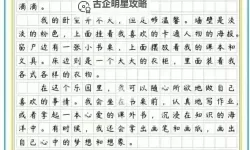 滴滴。
古企明星攻略
我的卧室并不大，但足够温馨。墙壁是淡
淡的粉色，上面挂着我喜欢的卡通人物的海报。
窗户边有一张小书桌，上面摆放着我的课本和
文具。床边则是一个大大的衣柜，里面挂着我
各式各样的衣物。
在这个乐园里，我可以随心所欲地做自己
喜欢的事情。我会坐在书桌前，认真地写作业，
或者拿起一本心爱的课外书，沉浸在知识的海
洋中。有时候，我还会拿出画笔和画纸，画出
自己心中的梦想和想象。